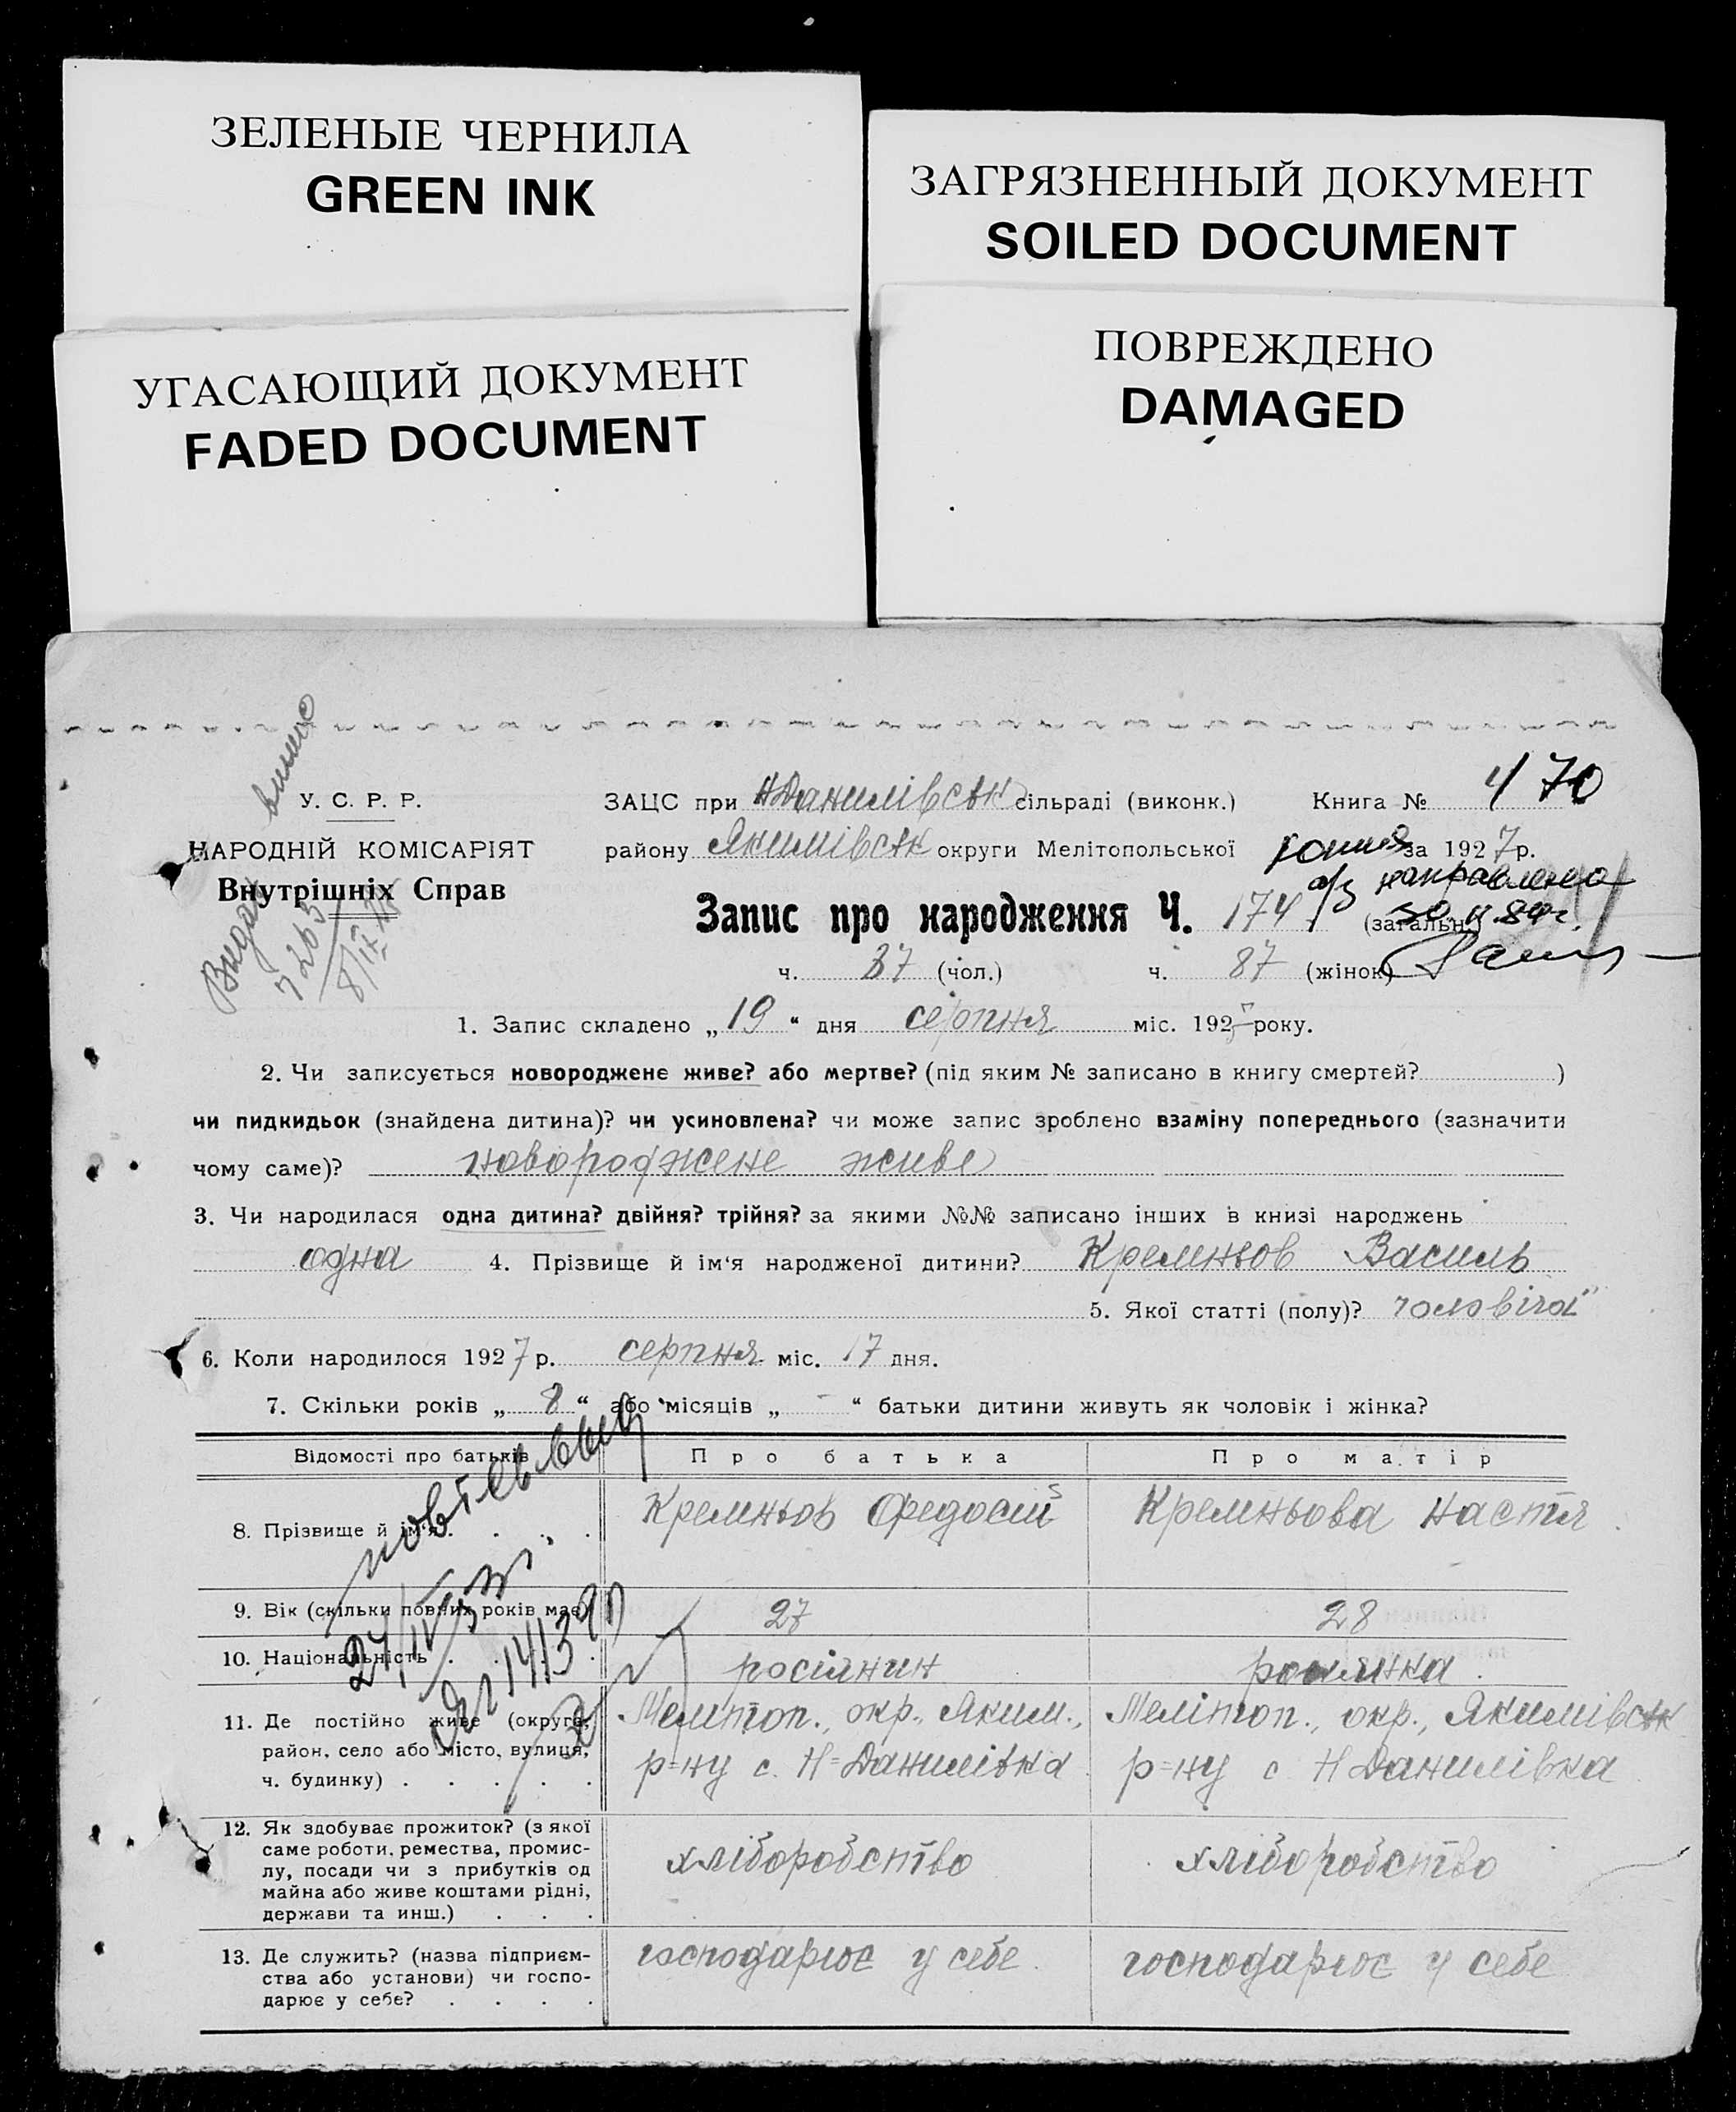 ЗЕЛЕНЫЕ ЧЕРНИЛА
GREEN INK
ЗАГРЯЗНЕННЫЙ ДОКУМЕНТ
SOILED DOCUMENT
УГАСАЮЩИЙ ДОКУМЕНТ
FADED DOCUMENT
ПОВРЕЖДЕНО
DAMAGED
У. С. Р. Р.
НАРОДНІЙ КОМІСАРІЯТ
Внутрішніх Справ
ЗАЦС при Н Данилівськ сільраді (виконк.) Книга № 470
району Якимівськ округи Мелітопольської за 1927 р.
Запис про народження Ч. 174 (загальн.)
ч. 87 (чол.) ч. 87 (жінок)
1. Запис складено „ 19 “ дня серпня міс. 192 року.
2. Чи записується новороджене живе? або мертве? (під яким № записано в книгу смертей? )
чи пидкидьок (знайдена дитина)? чи усиновлена? чи може запис зроблено взаміну попереднього (зазначити
чому саме)? новороджене живе
3. Чи народилася одна дитина? двійня? трійня? за якими №№ записано інших в книзі народжень
одна 4. Прізвище й ім‘я народженої дитини? Кремньов Василь
5. Якої статті (полу)? чоловічої
6. Коли народилося 1927 р. серпня міс. 17 дня.
7. Скільки років „ 8 “ або місяців „ - “ батьки дитини живуть як чоловік і жінка?
Відомості про батьків Про батька Про матір
8. Прізвище й ім‘я . . . . Кремньов Федосій Кремньова Настя
9. Вік (скільки повних років має) 27 28
10. Національність . . . . росіянин росіянка
11. Де постійно живе (округа,
район, село або місто, вулиця,
ч. будинку) . . . . .
Меліпоп., окр., Яким.,
р=ну с. Н=Данилівка
Мелітоп., окр., Якимівськ
р=ну с Н Данилівка
12. Як здобуває прожиток? (з якої
саме роботи, ремества, промис-
лу, посади чи з прибутків од
майна або живе коштами рідні,
держави та инш.) . . .
хліборобство хліборобство
13. Де служить? (назва підприєм-
ства або установи) чи госпо-
дарює у себе? . . . .
господарює у себе господарює у себе